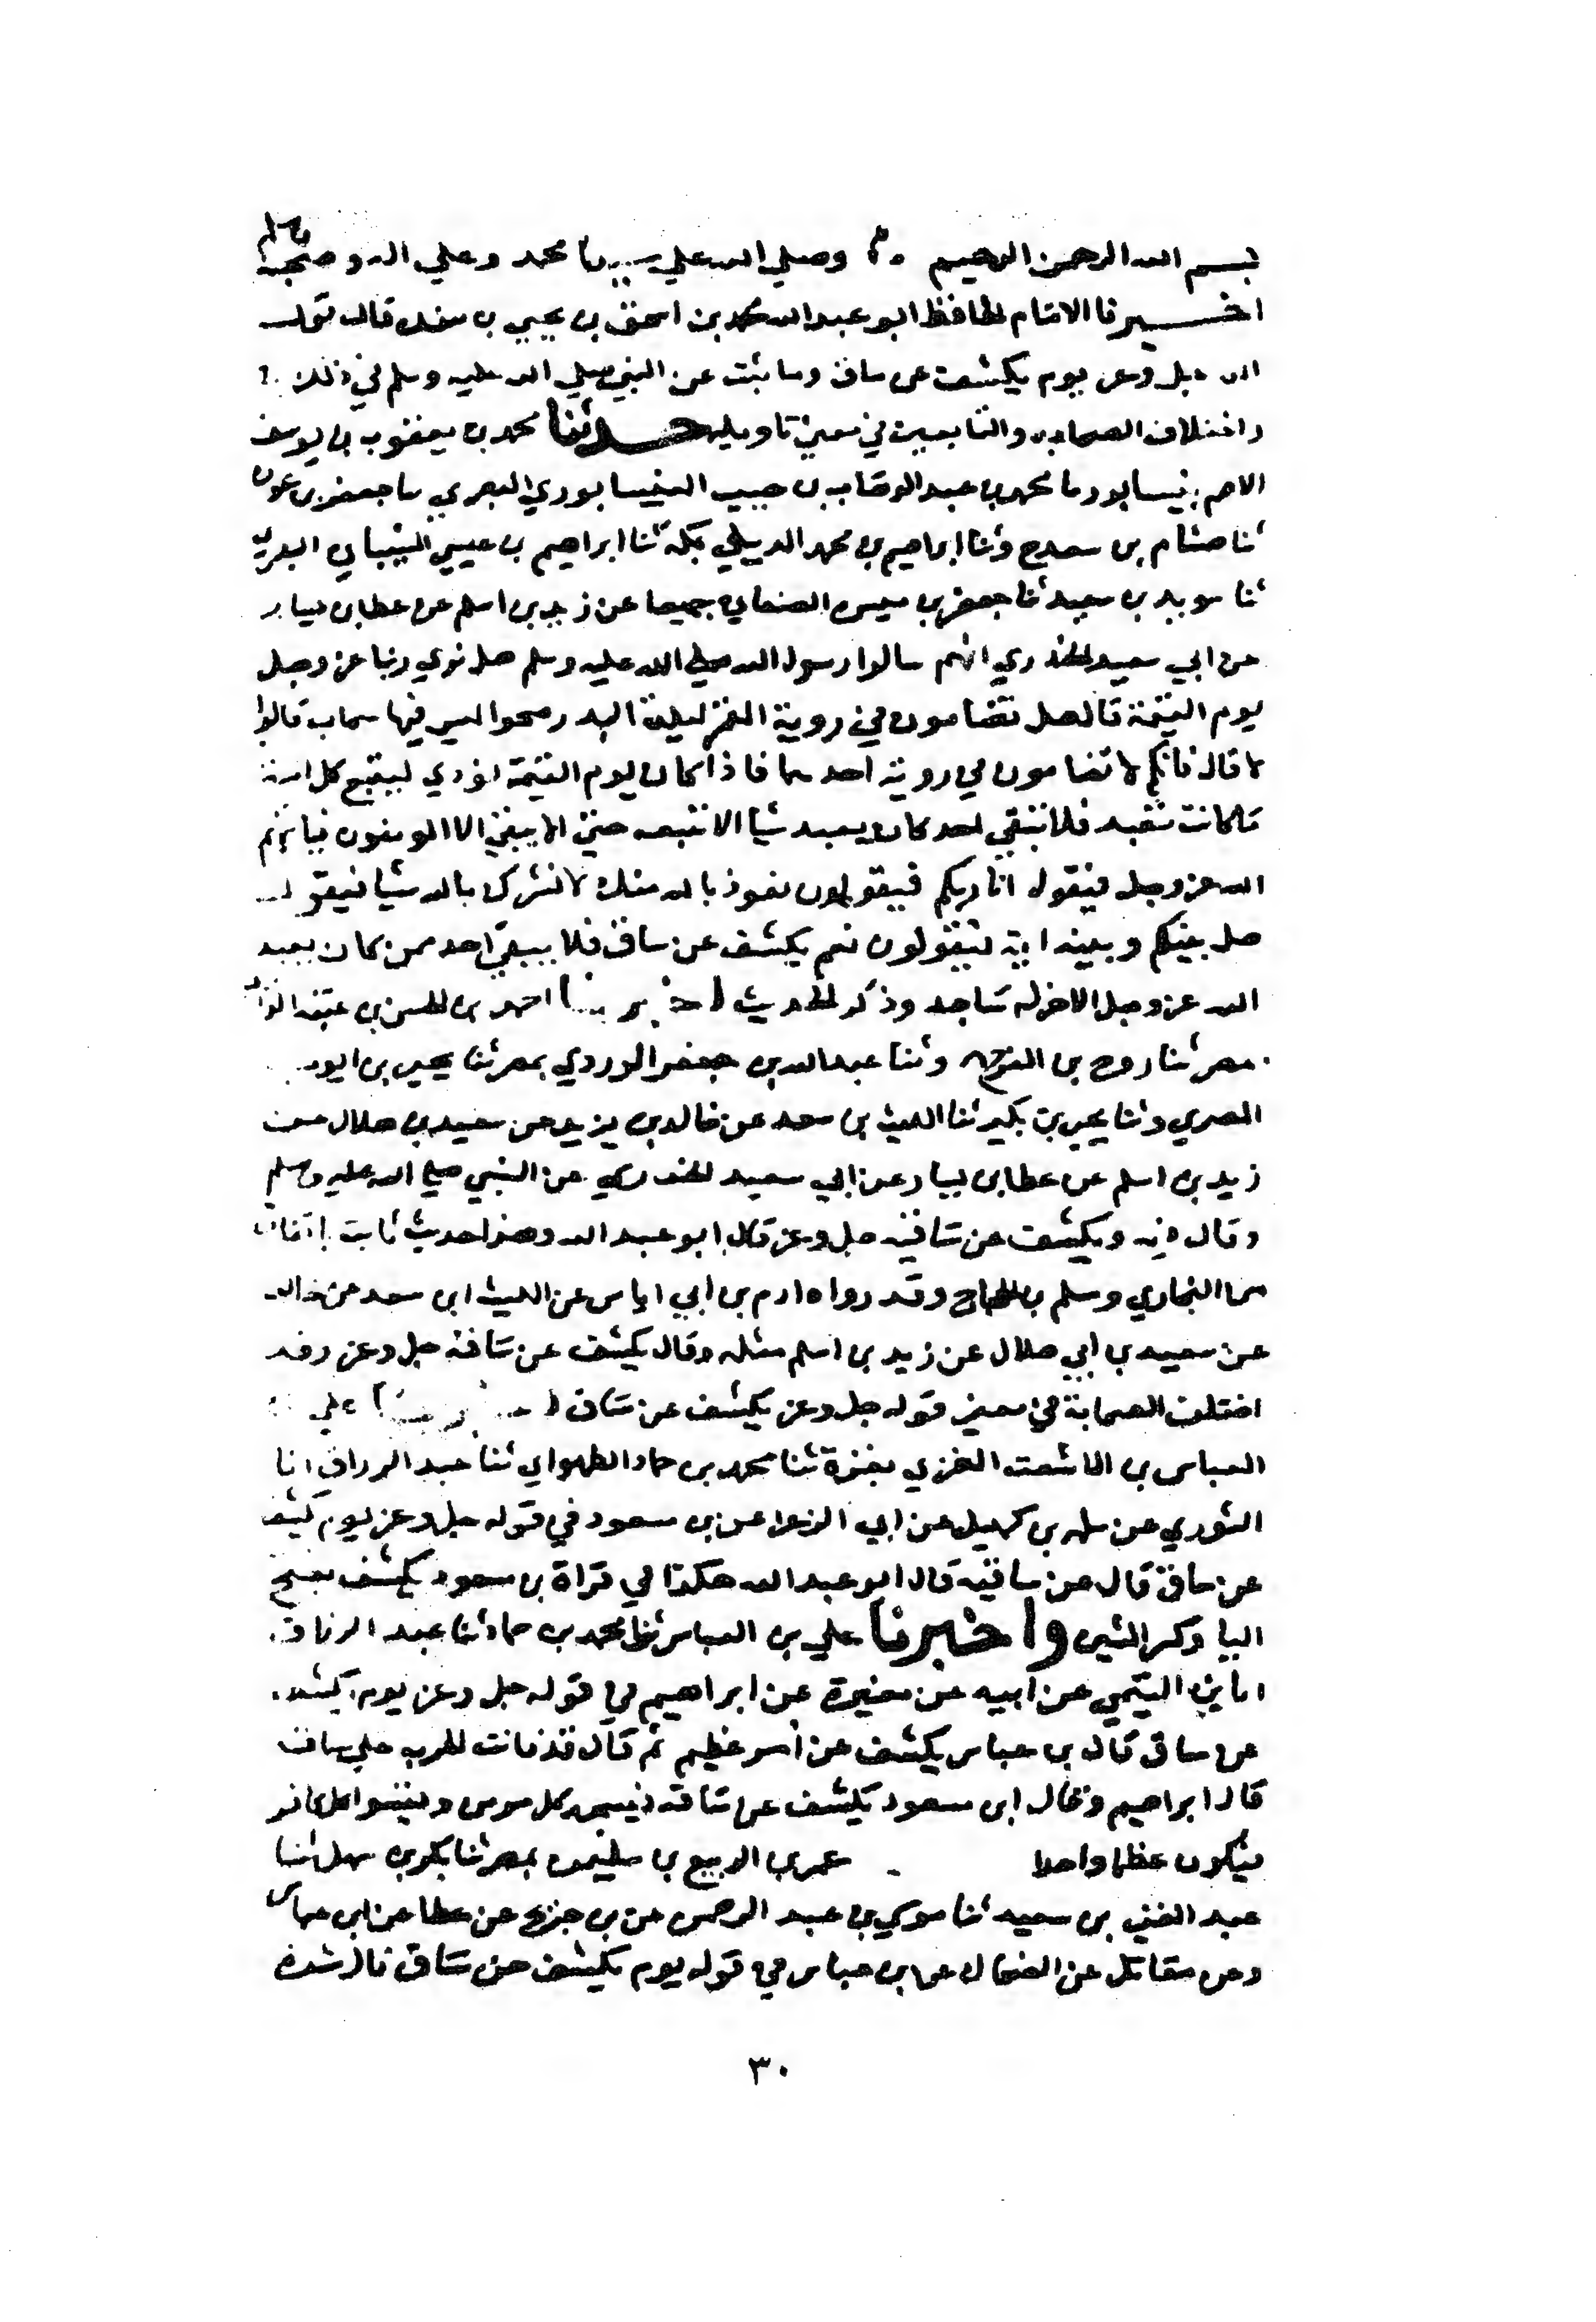 بسم الله الرحمن الرحيم وصلي الله علي سيدنا محمد وعلي اله وصحبه وسلم
اخبرنا الامام الحافظ ابو عبدالله محمد بن اسحق بن يحيي بن منده قال قوله
الله جل وعز يوم يكشف عن ساق وما ثبت عن النبي صلي الله عليه وسلم في ذلك
واختلاف الصحابة والتابعين في معني تاويله حدثنا محمد بن يعقوب بن يوسف
الاصم بنيسابور ما محمد بن عبد الوهاب بن حبيب النيسابوري العبدي ما جعفر بن عون
ثنا هشام بن سعد ح وثنا ابراهيم بن محمد الديبلي بمكة ثنا ابراهيم بن عيسي الشيباني
ثنا سويد بن سعيد ثنا حفص بن ميسرة الصنعاني جميعا عن زيد بن اسلم عن عطا بن يسار
عن ابي سعيد الخدري انهم سالوا رسول الله صلي الله عليه وسلم هل نري ربنا عز وجل
يوم القيمة قال هل تضامون في روية القمر ليلة البدر صحوا ليس فيها سحاب قالوا
لا قال فانكم لا تضامون في روية احدهما فاذا كان يوم القيمة نودي ليتبع كل امة
ما كانت تعبد فلا يبقي احد كان يعبد شيا الا تتبعه حتي لا يبقي الا المومنون فياتيهم
الله عز وجل فيقول انا ربكم فيقولون نعوذ بالله منك لا نشرك بالله شيا فيقول
هل بينكم وبينه اية فيقولون نعم يكشف عن ساق فلا يبقي احد ممن كان يعبد
الله عز وجل الا خر له ساجد وذكر الحديث اخبرنا احمد بن الحسن بن عتبة الرازي
بمصر ثنا روح بن الفرج وثنا عبدالله بن جعفر الوردي بمصر ثنا يحيي بن ايوب
المصري وثنا يحيي بن بكير ثنا الليث بن سعد عن خالد بن يزيد عن سعيد بن هلال عن
زيد بن اسلم عن عطا بن يسار عن ابي سعيد الخدري عن النبي صلي الله عليه وسلم
وقال فيه ويكشف عن ساقيه جل وعز قال ابو عبد الله وهذا حديث ثابت باتفاق
من البخاري ومسلم بن الحجاج وقد رواه ادم بن ابي اياس عن الليث ابن سعد عن خالد
عن سعيد بن ابي هلال عن زيد بن اسلم مثله وقال يكشف عن ساقه جل وعز وقد
اختلف الصحابة في معني قوله جل وعز يكشف عن ساق اخبرنا علي بن
العباس بن الاشعث الغزي بغزة ثنا محمد بن حماد الطهراني ثنا عبد الرزاق انا
الثوري عن سلمه بن كهيل عن ابي الزعرا عن بن مسعود في قوله جل وعز يوم يكشف
عن ساق قال عن ساقيه قال ابو عبد الله هكذا في قراة بن مسعود يكشف بفتح
اليا وكسر الشين واخبرنا علي بن العباس ثنا محمد بن حماد ثنا عبد الرزاق
انا بن التيمي عن ابيه عن مغيرة عن ابراهيم في قوله جل وعز يوم يكشف
عن ساق قال بن عباس يكشف عن امر عظيم ثم قال قد قامت الحرب علي ساق
قال ابراهيم وقال ابن مسعود يكشف عن ساقه فيسجد كل مومن ويقسوا
فيكون عظما واحدا عمر بن الربيع بن سليمن بمصر ثنا بكر بن سهل ثنا
عبد الغني بن سعيد ثنا موسي بن عبد الرحمن عن بن جريج عن عطا عن ابن عباس
وعن مقاتل عن الضحاك عن ابن عباس في قوله يوم يكشف عن ساق قال شدة
٣٠